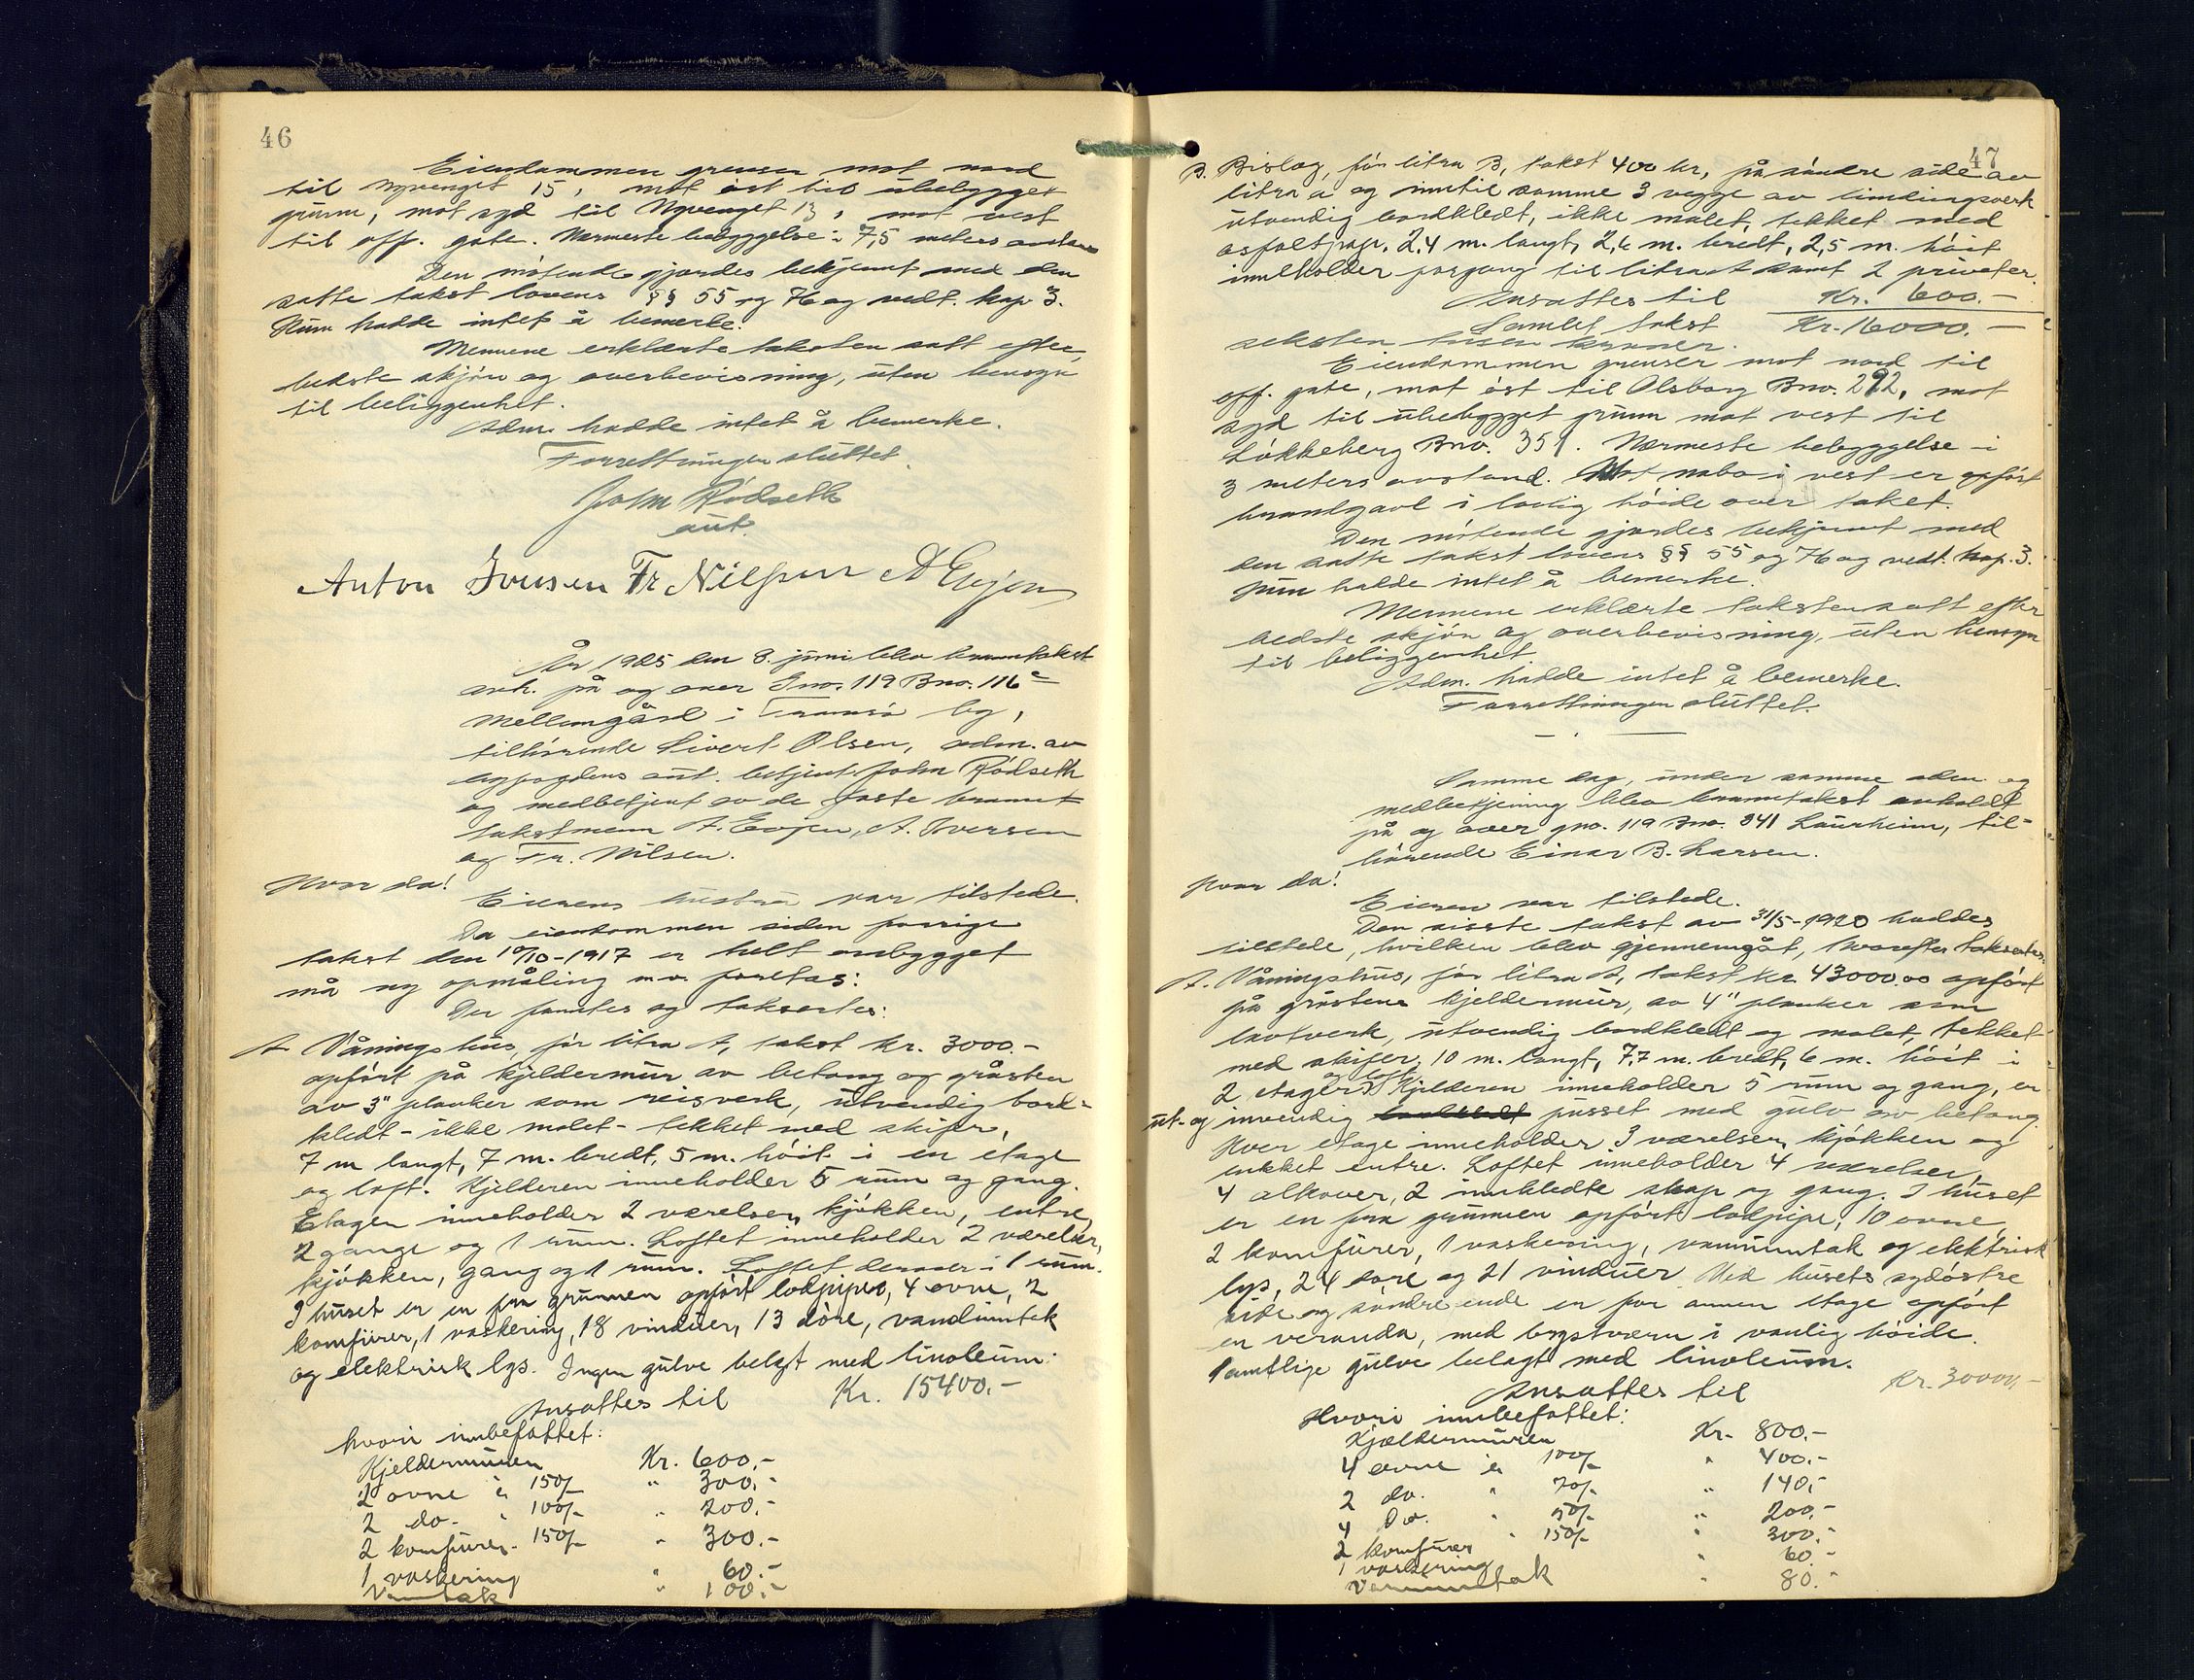 46
Eiendommen grenser mot nord
til Nyvenget 15, mot øst til ubebygget
grunn, mot syd til Nyvenget 13, mot vest
til off. gate. Nærmeste bebyggelse i 7,5 meters avstand
Den møtende gjordes bekjent med den
satte takst lovens §§ 55 og 76 og vedt. kap 3.
Hun hadde intet å bemerke.
Mennene erklærte taksten satt efter
bedste skjøn og overbevisning, uten hensyn
til beliggenhet.
Adm. hadde intet å bemerke.
Forretningen sluttet.
John Rødseth
aut.
Anton Iversen Fr Nilssen A Evjen
År 1925 den 8. juni blev branntakst
avh. på og over Gno. 119 Bno. 116c
Mellemgård i Tromsø by,
tilhørende Sivert Olsen, adm. av
byfogdens aut. betjent John Rødseth
og medbetjent av de faste brannt
takstmenn A. Evjen, A. Iversen
og Fr. Nilsen.
Hvor da!
Eierens hustru var tilstede.
Da eiendommen siden forrige
takst den 10/10-1917 er helt ombygget
må ny opmåling m.v. foretas:
Der fantes og taksertes:
A Våningshus, før litra A, takst kr. 3000.-
opført på kjeldermur av betong og gråsten
av 3" planker som reisverk, utvendig bord-
kledt - ikke malet - tekket med skifer,
7 m langt, 7 m. bredt, 5 m. høit i en etage
og loft. Kjelderen inneholder 5 rum og gang.
Etagen inneholder 2 værelser, kjøkken, entre,
2 gange og 1 rum. Loftet inneholder 2 værelser,
kjøkken, gang og 1 rum. Loftet derover i 1 rum.
I huset er en fra grunnen opført lodpipe, 4 ovne, 2
komfurer, 1 vaskering, 18 vinduer, 13 døre, vandinntak
og elektrisk lys. Ingen gulve belagt med linoleum.
Ansattes til Kr. 15400.-
hvori innbefattet:
Kjeldermuren Kr. 600.-
2 ovne à 150/- " 300.-
2 do. " 100/- " 200.-
2 komfurer " 150/- " 300.-
1 vaskering " 60.-
Vanntak " 100.-
47
B. Bislag, før litra B, takst 400 kr, på søndre side av
litra A og inntil samme 3 vegge av bindingsverk
utvendig bordkledt, ikke malet, tekket med
asfaltpap, 2,4 m. langt, 2,6 m. bredt, 2,5 m. høit
inneholder forgang til litra A samt 2 priveter.
Ansattes til Kr. 600.-
Samlet takst Kr. 16000.-
seksten tusen kroner.
Eiendommen grenser mot nord til
off. gate, mot øst til Olsborg Bno. 292, mot
syd til ubebygget grunn mot vest til
Løkkeberg Bno. 351. Nærmeste bebyggelse i
3 meters avstand. Mot nabo i vest er opført
branngavl i lovlig høide over taket.
Den møtende gjordes bekjennt med
den satte takst lovens §§ 55 og 76 og vedt. kap. 3.
Hun hadde intet å bemerke.
Mennene erklærte taksten satt efter
bedste skjøn og overbevisning, uten hensyn
til beliggenhet.
Adm. hadde intet å bemerke.
Forretningen sluttet.
Samme dag, under samme adm. og
medbetjening blev branntakst avholdt
på og over gno. 119 Bno. 341 Laurheim, til-
hørende Einar B. Larsen.
Hvor da!
Eieren var tilstede.
Den sisste takst av 31/5-1920 haddes
tilstede, hvilken blev gjennemgåt, hvorefter taksertes:
A. Våningshus, før litra A, takst kr 43000.00 opført
på gråstens kjeldermur, av 4" planker som
lavtverk, utvendig bordkledt og malet, tekket
med skifer, 10 m. langt, 7,7 m. bredt, 6 m. høit i
2 etager og loft. Kjelderen inneholder 5 rum og gang, er
ut- og innvendig pusset med gulv av betong.
Hver etage inneholder 3 værelser, kjøkken og
lukket entre. Loftet inneholder 4 værelser,
4 alkover, 2 innkledte skap og gang. I huset
er en fra grunnen opført lodpipe, 10 ovne,
2 komfurer, 1 vaskering, vanninntak og elektrisk
lys, 24 døre og 21 vinduer. Ved husets sydøstre
side og søndre ende er for annen etage opført
en veranda, med brystvern i vanlig høide.
Samtlige gulve belagt med linoleum.
Ansattes til Kr. 30000.-
Hvori innbefattet:
Kjældermuren Kr. 800.-
4 ovne à 100/- " 400.-
2 do. " 70/- " 140.-
4 Do. " 50/- " 200.-
2 komfurer " 150/- " 300.-
1 vaskering " 60.-
Vanninntak " 80.-